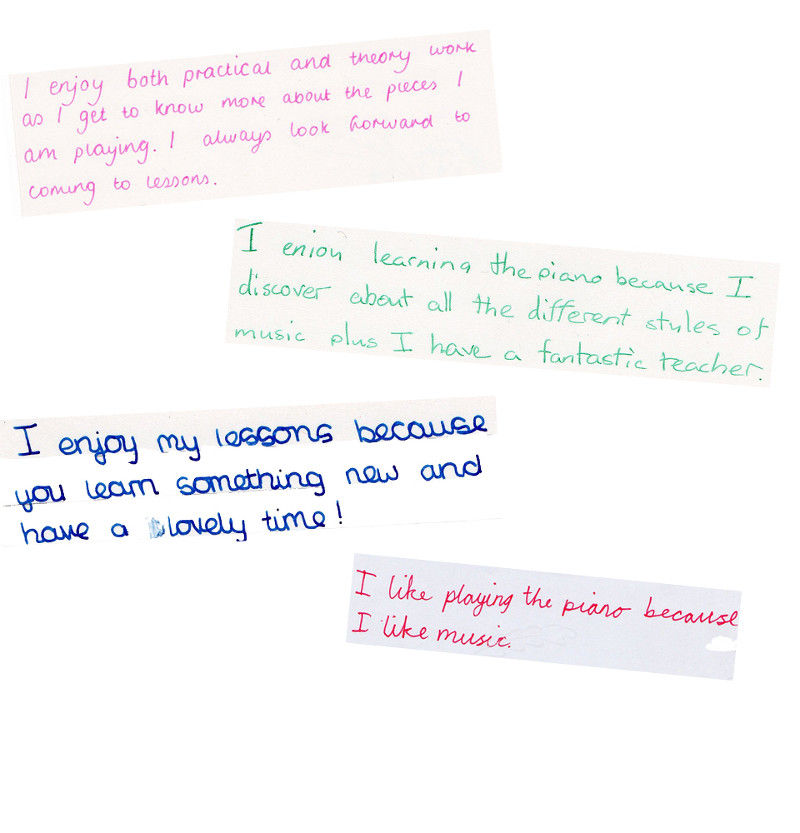 I enjoy both practical and theory work
as I get to know more about the pieces I
am playing. I always look forward to
coming to lessons.
I enjoy learning the piano because I
discover about all the different styles of
music plus I have a fantastic teacher.
I enjoy my lessons because
you learn something new and
have a lovely time!
I like playing the piano because
I like music.